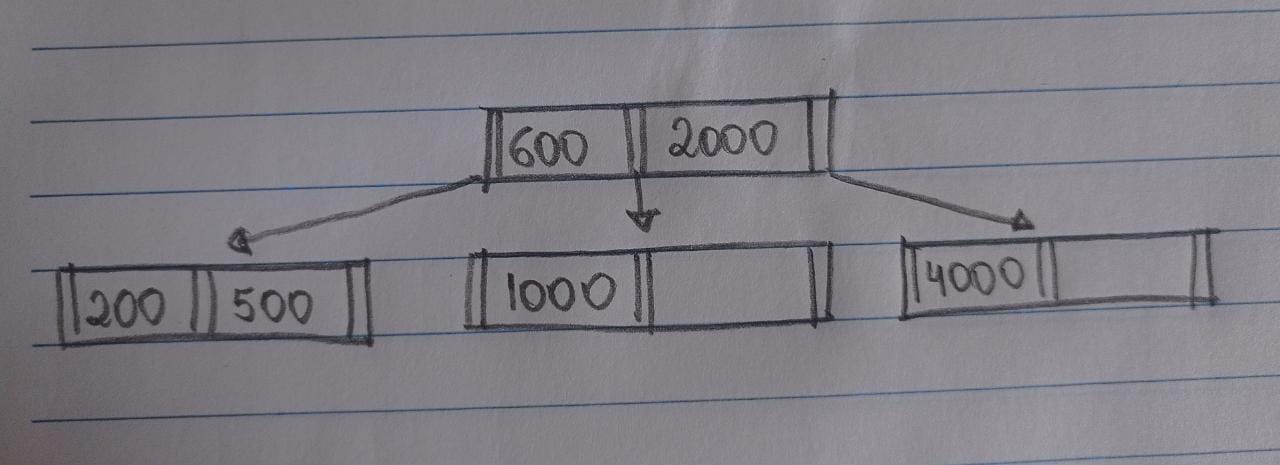 600 2000
200 500 1000 4000